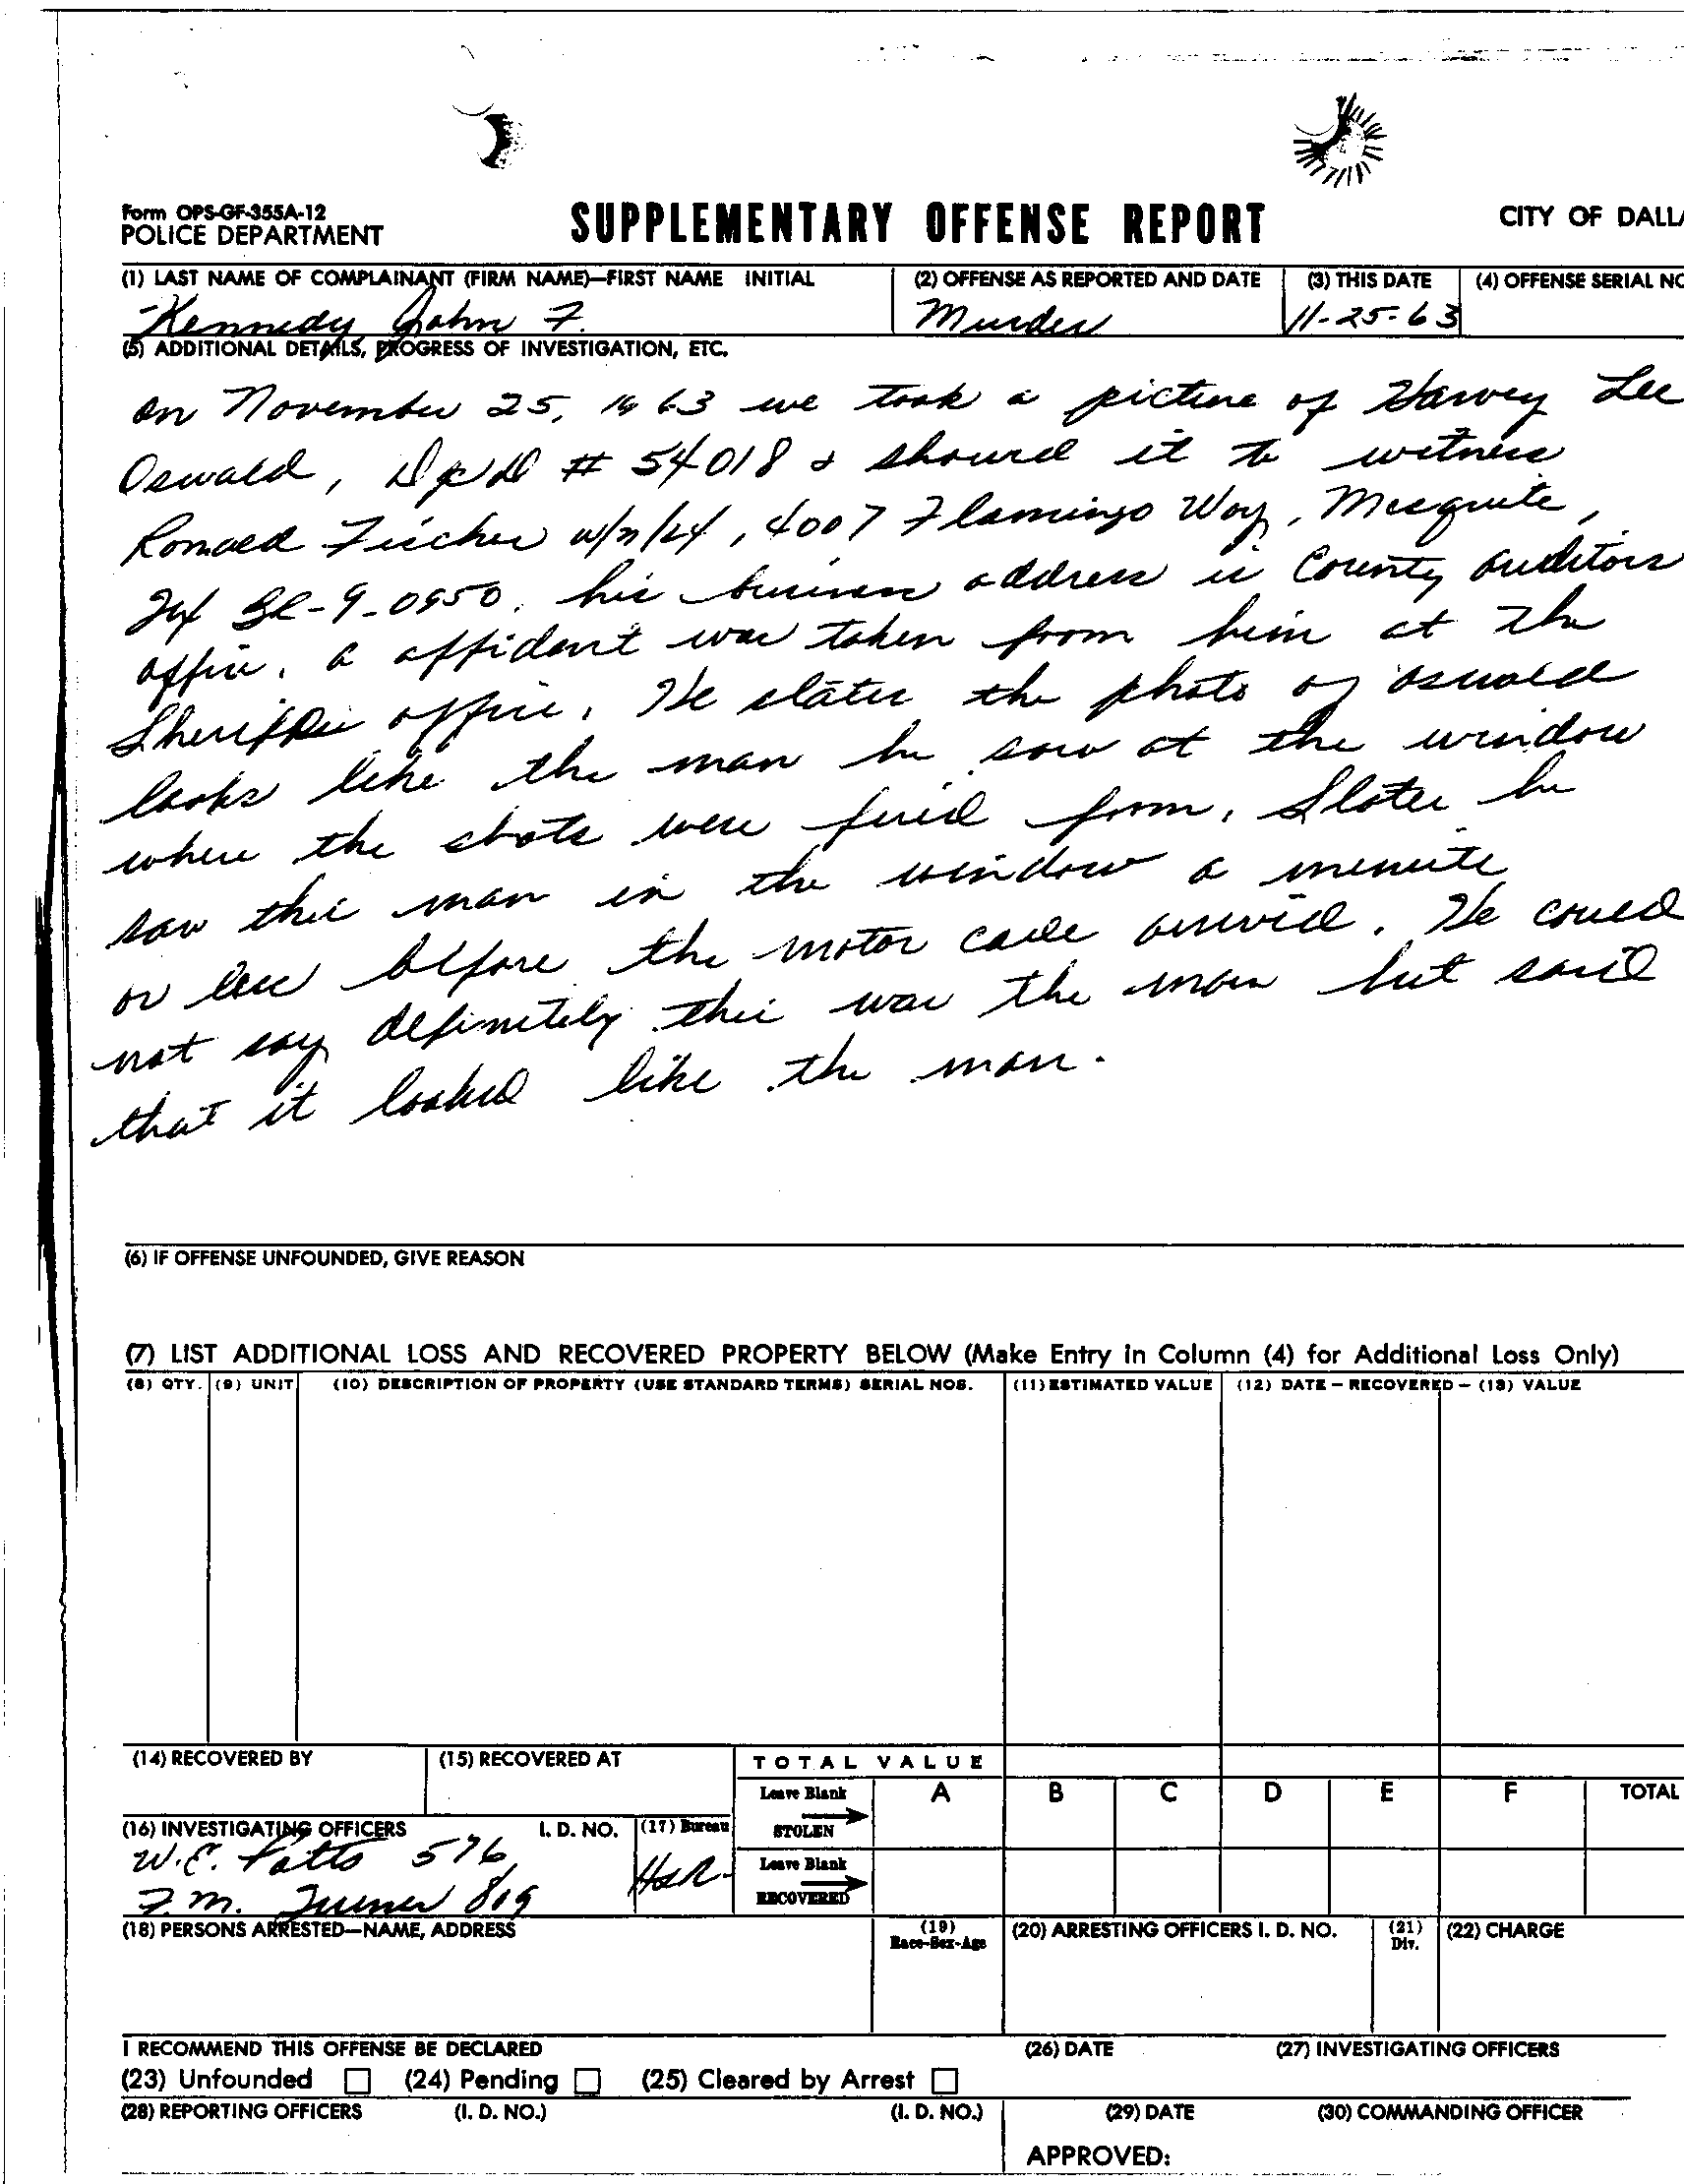 Form OPS-GF-355A-12
POLICE DEPARTMENT
SUPPLEMENTARY OFFENSE REPORT
CITY OF DALLA
(1) LAST NAME OF COMPLAINANT (FIRM NAME)—FIRST NAME INITIAL
(2) OFFENSE AS REPORTED AND DATE
(3) THIS DATE
(4) OFFENSE SERIAL NO
Kennedy John F.
Murder
11-25-63
(5) ADDITIONAL DETAILS, PROGRESS OF INVESTIGATION, ETC.
on November 25, 1963 we took a picture of Harvey Lee
Oswald, DPD # 54018 & showed it to witness
Ronald Fischer w/m/24, 4007 Flamingo Way, Mesquite,
Tex BL-9-0950. his business address is County auditors
office. a affidavit was taken from him at the
Sheriffs office. He states the photo of oswald
looks like the man he saw at the window
where the shots were fired from. States he
saw this man in the window a minute
or less before the motor cade arrived. He could
not say definitely this was the man but said
that it looked like the man.
(6) IF OFFENSE UNFOUNDED, GIVE REASON
(7) LIST ADDITIONAL LOSS AND RECOVERED PROPERTY BELOW (Make Entry in Column (4) for Additional Loss Only)
(8) QTY. (9) UNIT (10) DESCRIPTION OF PROPERTY (USE STANDARD TERMS) SERIAL NOS. (11) ESTIMATED VALUE (12) DATE – RECOVERED – (13) VALUE
(14) RECOVERED BY
(15) RECOVERED AT
TOTAL VALUE
Leave Blank
STOLEN
A B C D E F TOTAL
(16) INVESTIGATING OFFICERS I. D. NO. (17) Bureau
W.E. Potts 576
H&R
Leave Blank
RECOVERED
F.M. Turner 809
(18) PERSONS ARRESTED—NAME, ADDRESS
(19)
Race-Sex-Age
(20) ARRESTING OFFICERS I. D. NO.
(21)
Div.
(22) CHARGE
I RECOMMEND THIS OFFENSE BE DECLARED
(26) DATE
(27) INVESTIGATING OFFICERS
(23) Unfounded (24) Pending (25) Cleared by Arrest
(28) REPORTING OFFICERS (I. D. NO.) (I. D. NO.)
(29) DATE
(30) COMMANDING OFFICER
APPROVED: